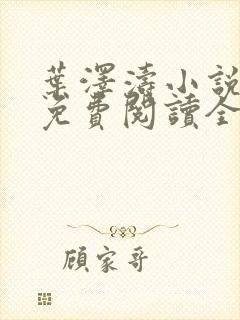 葉澤濤小說
免費閱讀全
顧家哥